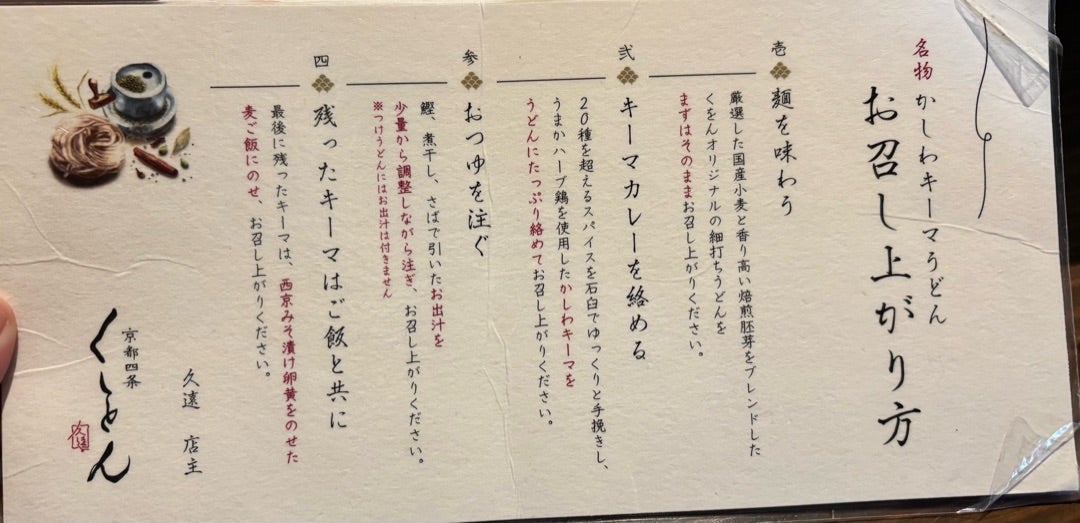 名物 かしわキーマうどん
お召し上がり方
壱
麺を味わう
厳選した国産小麦と香り高い焙煎胚芽をブレンドした
くをんオリジナルの細打ちうどんを
まずはそのままお召し上がりください。
弐
キーマカレーを絡める
20種を超えるスパイスを石臼でゆっくりと手挽きし、
うまかハーブ鶏を使用したかしわキーマを
うどんにたっぷり絡めてお召し上がりください。
参
おつゆを注ぐ
鰹、煮干し、さばで引いたお出汁を
少量から調整しながら注ぎ、お召し上がりください。
※つけうどんにはお出汁は付きません
四
残ったキーマはご飯と共に
最後に残ったキーマは、西京みそ漬け卵黄をのせた
麦ご飯にのせ、お召し上がりください。
久遠 店主
京都四条
くをん
久遠